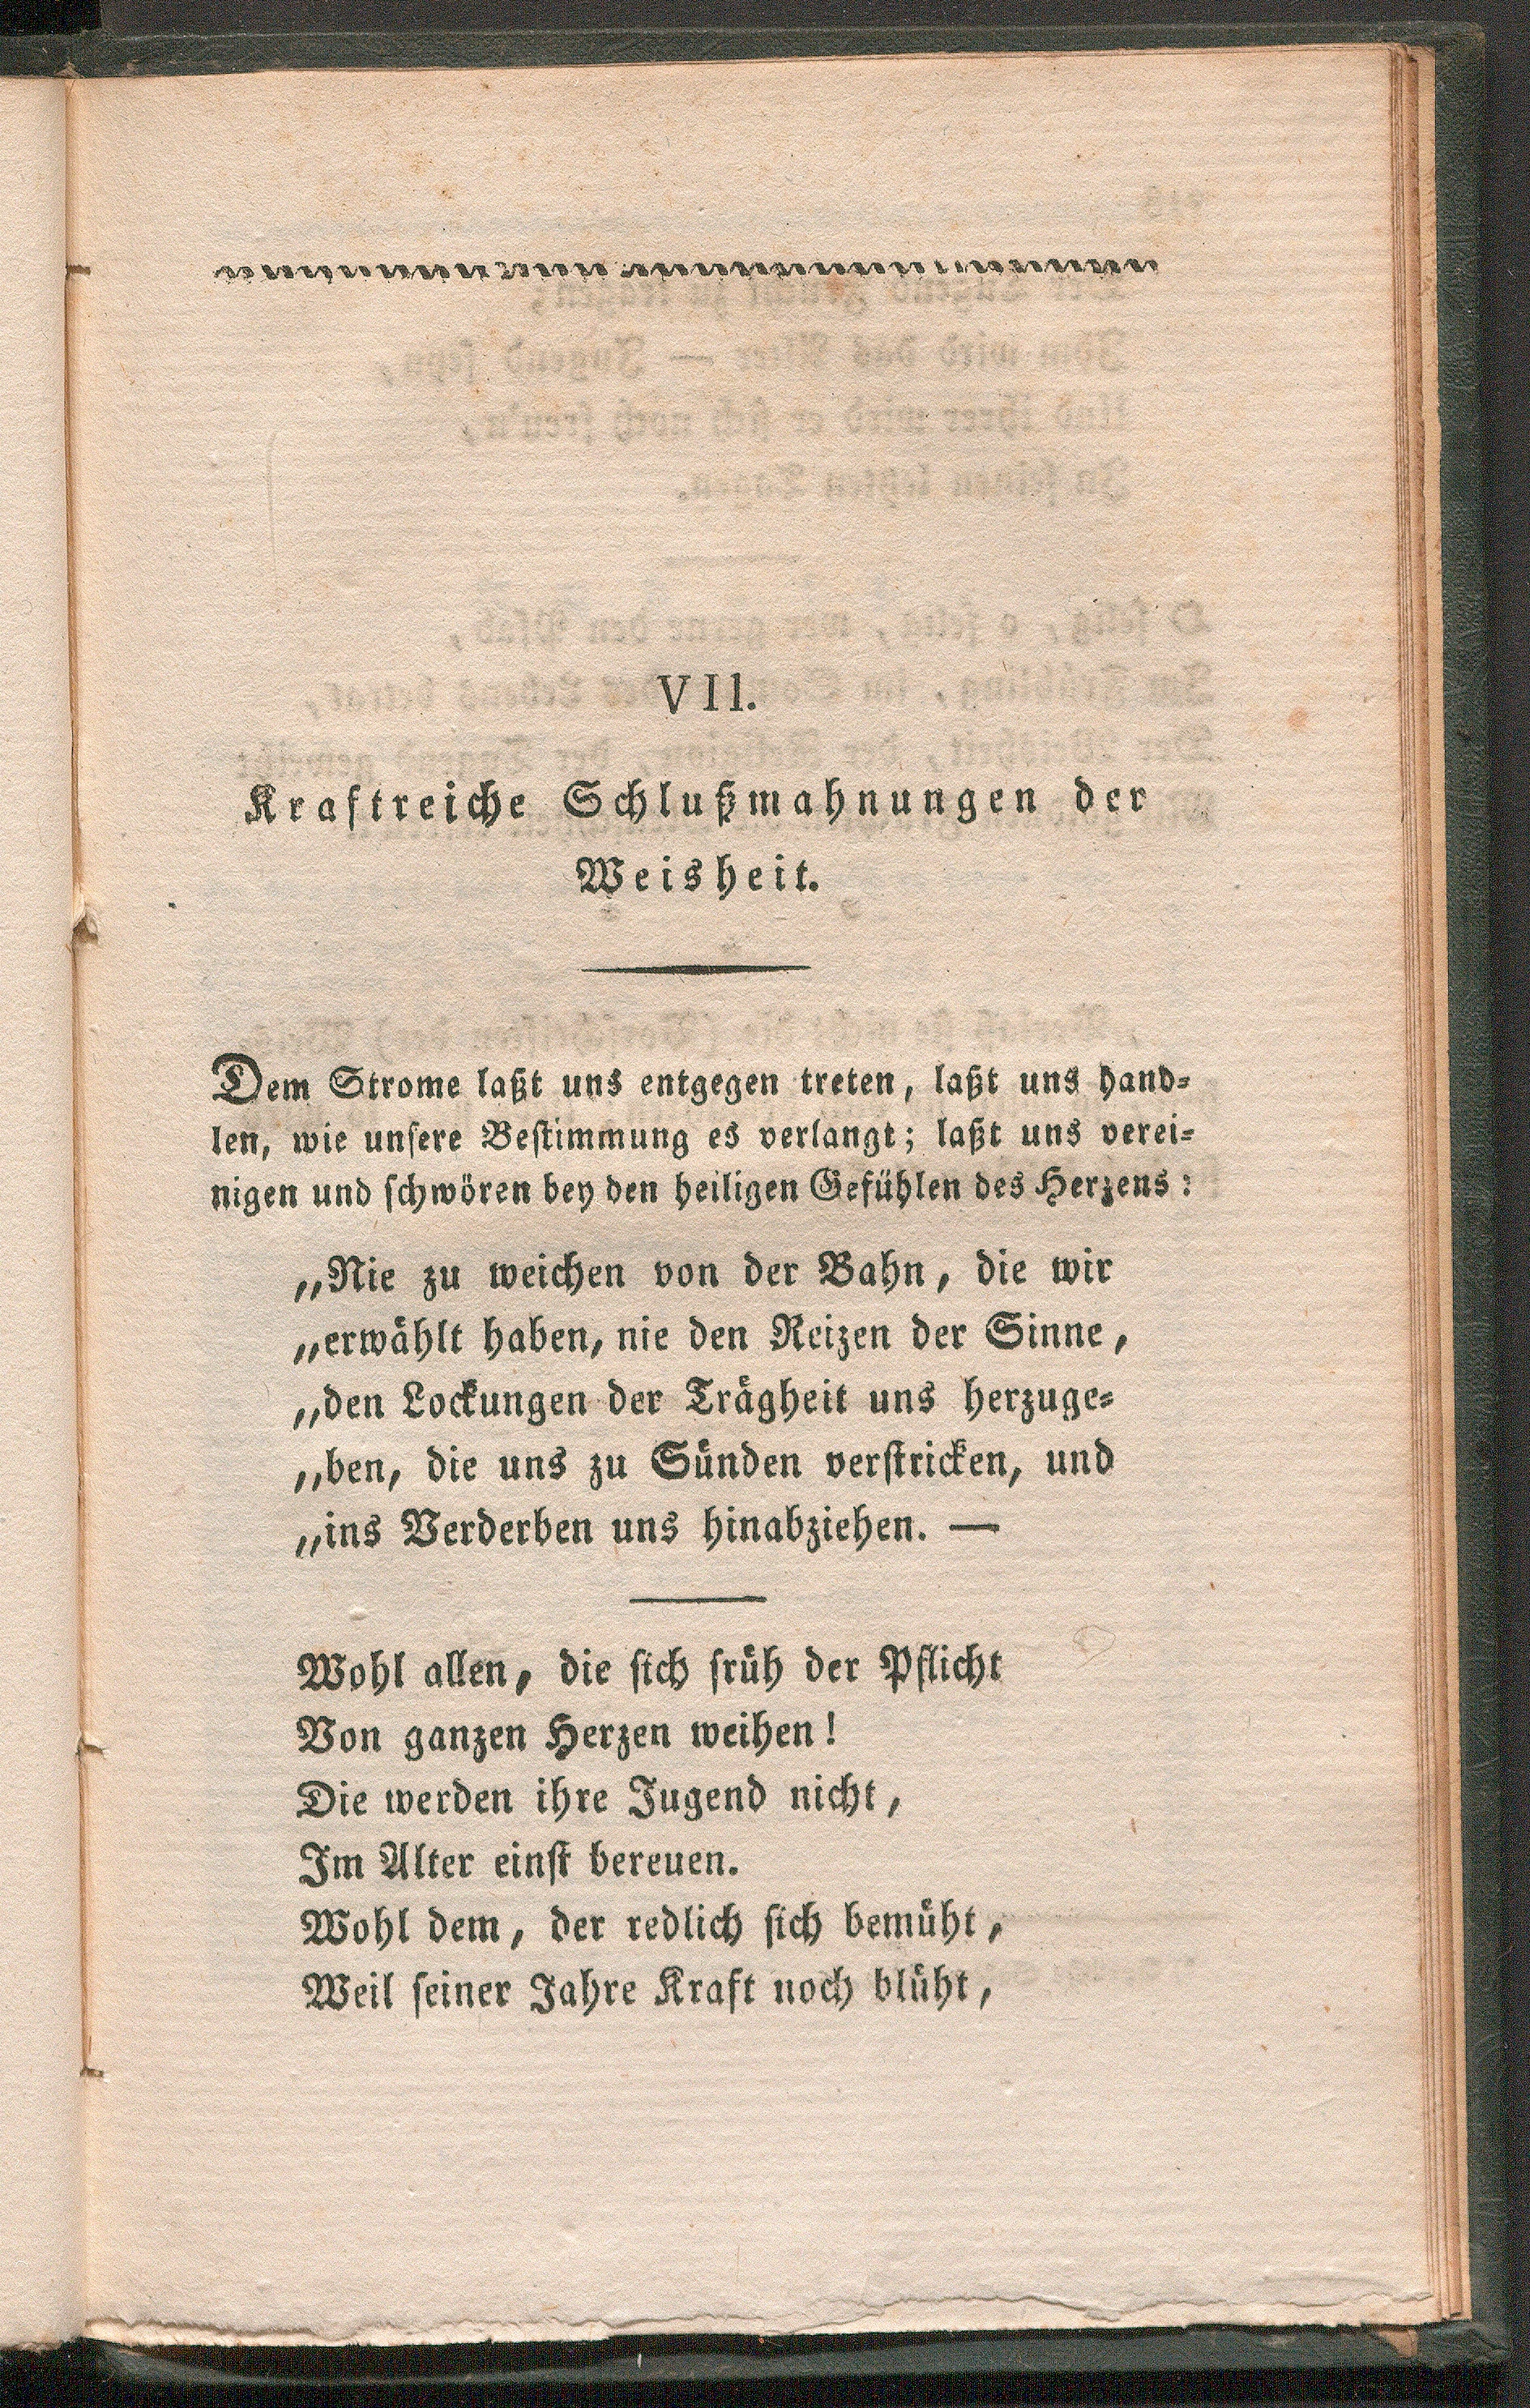 VII.
Kraftreiche Schlußmahnungen der
Weisheit.
Dem Strome laßt uns entgegen treten, laßt uns hand-
len, wie unsere Bestimmung es verlangt; laßt uns verei-
nigen und schwören bey den heiligen Gefühlen des Herzens:
„Nie zu weichen von der Bahn, die wir
„erwählt haben, nie den Reizen der Sinne,
„den Lockungen der Trägheit uns herzuge-
„ben, die uns zu Sünden verstricken, und
„ins Verderben uns hinabziehen. —
Wohl allen, die sich früh der Pflicht
Von ganzen Herzen weihen!
Die werden ihre Jugend nicht,
Im Alter einst bereuen.
Wohl dem, der redlich sich bemüht,
Weil seiner Jahre Kraft noch blüht,